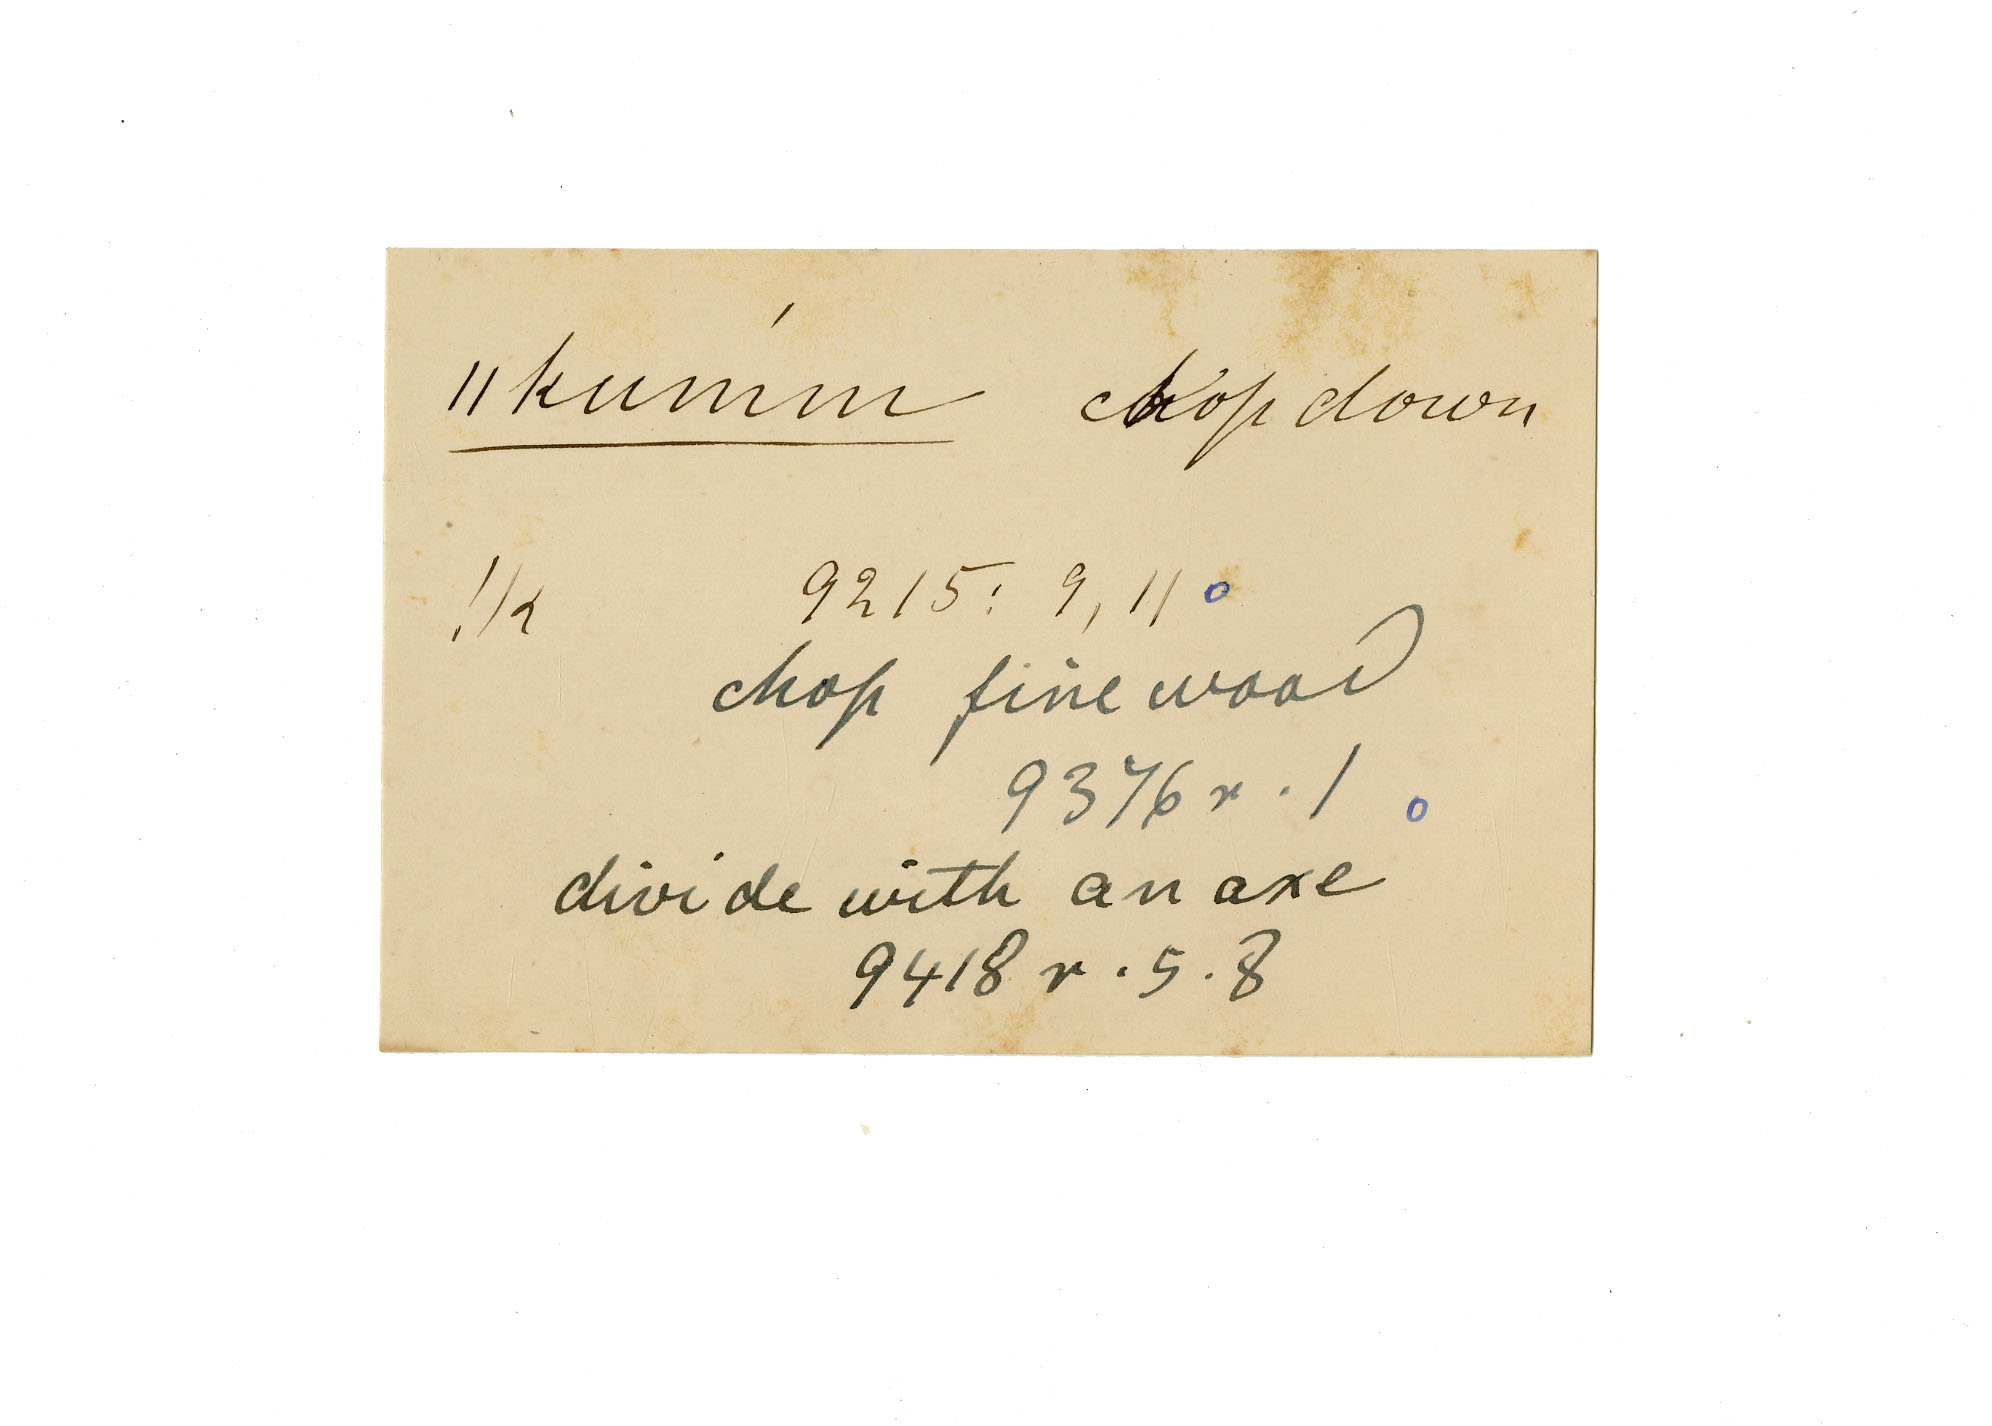 ǁkum'm chop down
!k 9215: 9, 11 o
chop fire wood
9376 r. 1 o
divide with an axe
9418 r. 5. 8